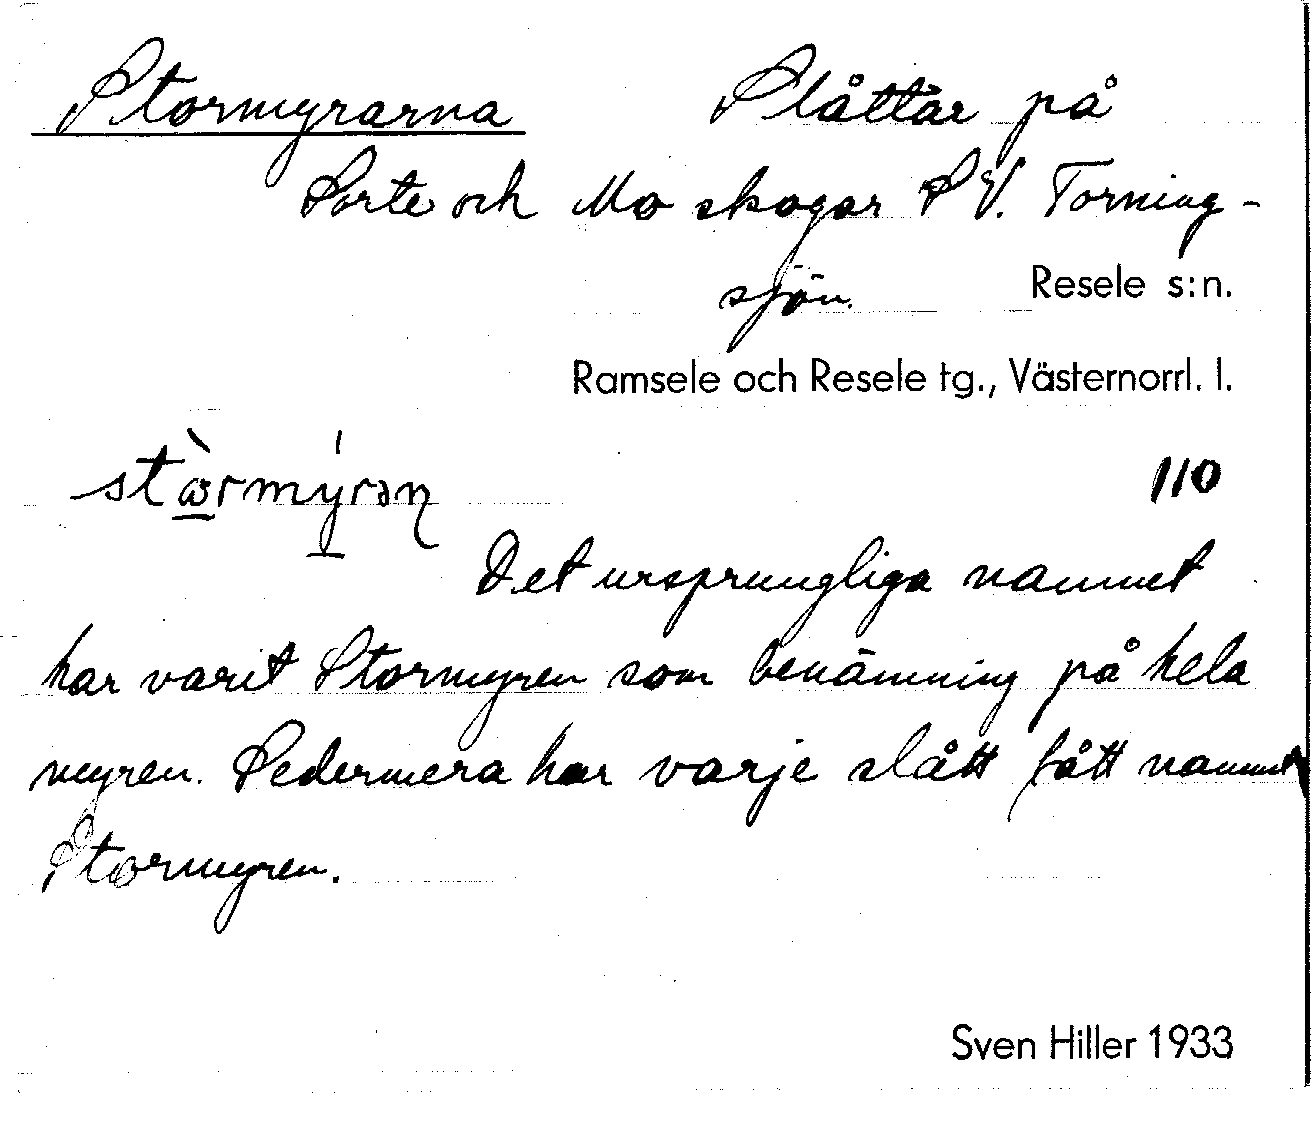 Stormyrarna Slåttar på
Sorte och Mo skogar S V. Torning-
sjön. Resele s:n.
Ramsele och Resele tg., Västernorrl. l.
110
Det ursprungliga namnet
har varit Stormyren som benämning på hela
myren. Sedermera har varje slått fått namnet
Stormyren.
Sven Hiller 1933